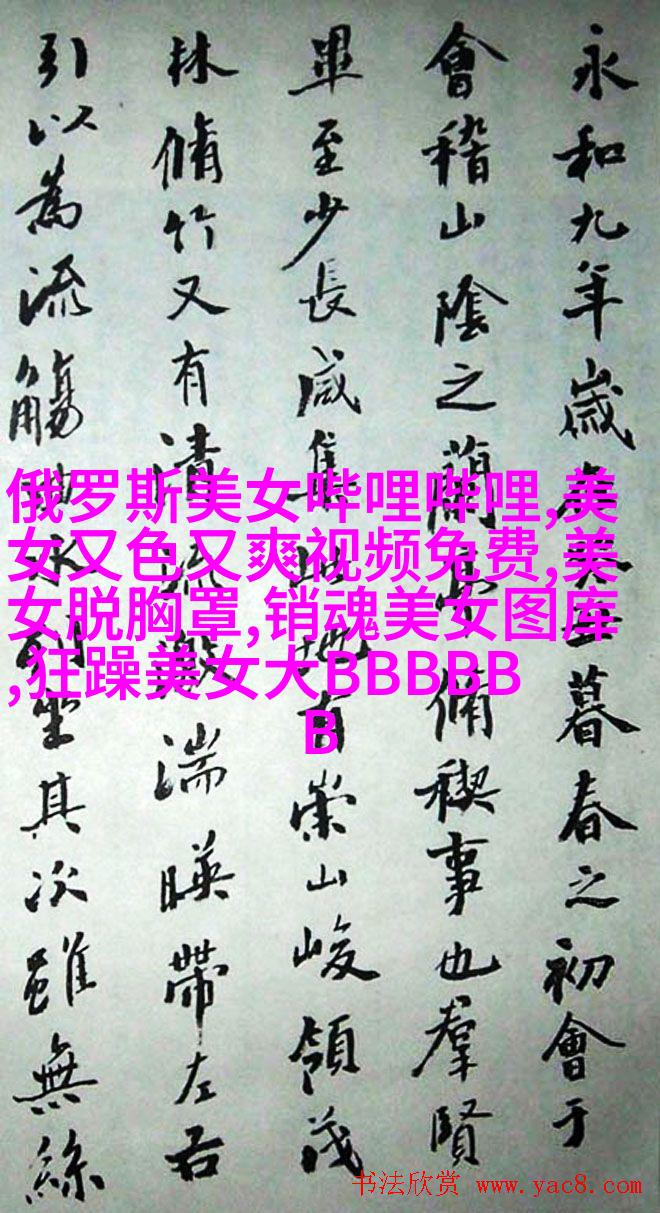 永和九年歲暮春之初會于
會稽山陰之蘭亭脩稧事也羣賢
畢至少長咸集此地有崇山峻領茂
林脩竹又有清流激湍暎帶左右
引以為流觴曲水列坐其次雖無絲
俄罗斯美女哔哩哔哩,美
女又色又爽视频免费,美
女脱胸罩,销魂美女图库
,狂躁美女大BBBBB
B
书法欣赏 www.yac8.com